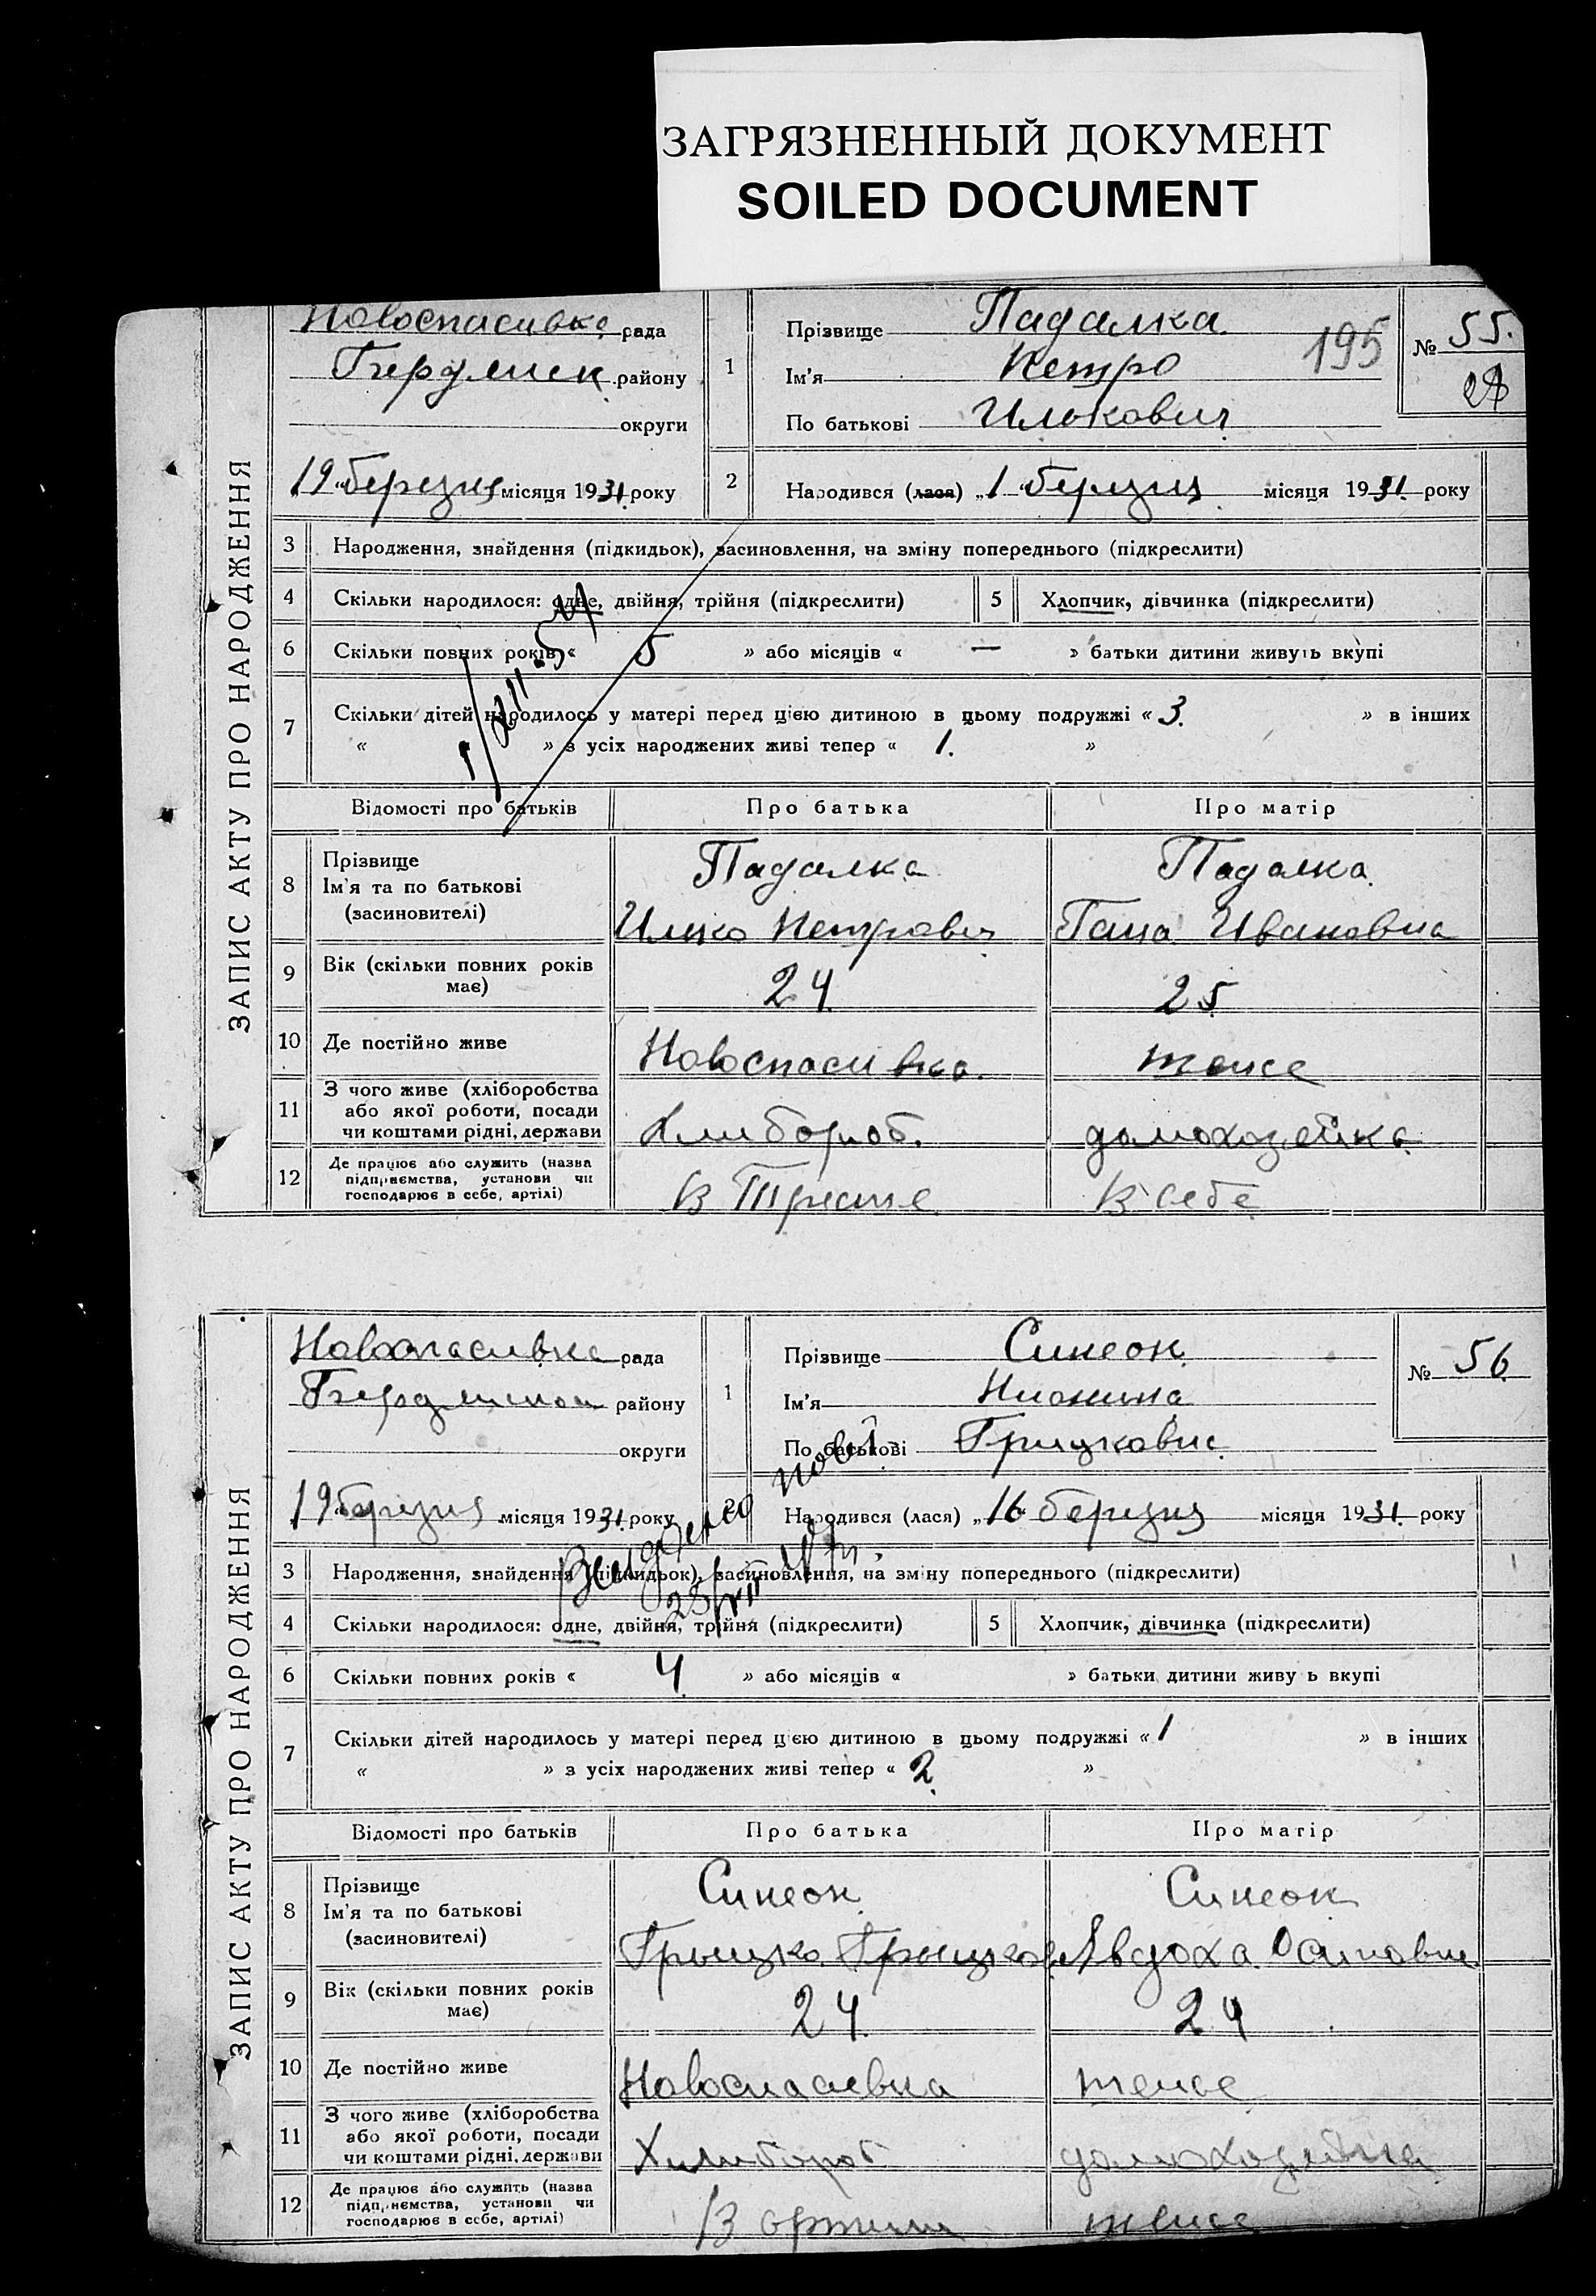 ЗАГРЯЗНЕННЫЙ ДОКУМЕНТ
SOILED DOCUMENT
ЗАПИС АКТУ ПРО НАРОДЖЕННЯ
Новоспасивка рада
района
округи
19 "березня місяця 1931 року
1
Прізвище Падалка
Ім'я Петро
По батькові Илькович
195
№ 55.
2
Народився (лася) „1" березня місяця 1931. року
3 Народження, знайдення (підкидьок), засиновлення, на зміну попереднього (підкреслити)
4 Скільки народилося: одне, двійня, трійня (підкреслити)
5 Хлопчик, дівчинка (підкреслити)
6 Скільки повних років « 5 » або місяців « — » батьки дитини живуть вкупі
7 Скільки дітей народилось у матері перед цією дитиною в цьому подружжі « 3. » в інших
« » з усіх народжених живі тепер « 1. »
Відомості про батьків Про батька Про матір
8 Прізвище
Ім'я та по батькові
(засновителі)
Падалка
Илько Петрович
Падалка
Гана Ивановна
9 Вік (скільки повних років має) 24 25
10 Де постійно живе Новоспасивка. тоже
11 З чого живе (хліборобства
або якої роботи, посади
чи коштами рідні, держави
Хлибороб. домохозейка
12 Де працює або служить (назва
підприємства, установи чи
господарює в себе, артілі)
В себе
ЗАПИС АКТУ ПРО НАРОДЖЕННЯ
Новоспасивка рада
району
округи
19 "березня місяця 1931. року
1
Прізвище Синеок
Ім'я
По батькові Грицковна
№ 56
2
Народився (лася) „16" березня місяця 1931. року
3 Народження, знайдення (підкидьок), засиновлення, на зміну попереднього (підкреслити)
4 Скільки народилося: одне, двійня, трійня (підкреслити)
5 Хлопчик, дівчинка (підкреслити)
6 Скільки повних років « 4 » або місяців « » батьки дитини живу ь вкупі
7 Скільки дітей народилось у матері перед цією дитиною в цьому подружжі « 1 » в інших
« » з усіх народжених живі тепер « 2 »
Відомості про батьків Про батька Про матір
8 Прізвище
Ім'я та по батькові
(засиновителі)
Синеок
Грицко
Синеок
Явдоха Осиповна
9 Вік (скільки повних років має) 24. 24
10 Де постійно живе Новоспасивка тоже
11 З чого живе (хліборобства
або якої роботи, посади
чи коштами рідні, держави
Хлибороб домохозейка
12 Де працює або служить (назва
підприємства, установи чи
господарює в себе, артілі)
В артили тоже